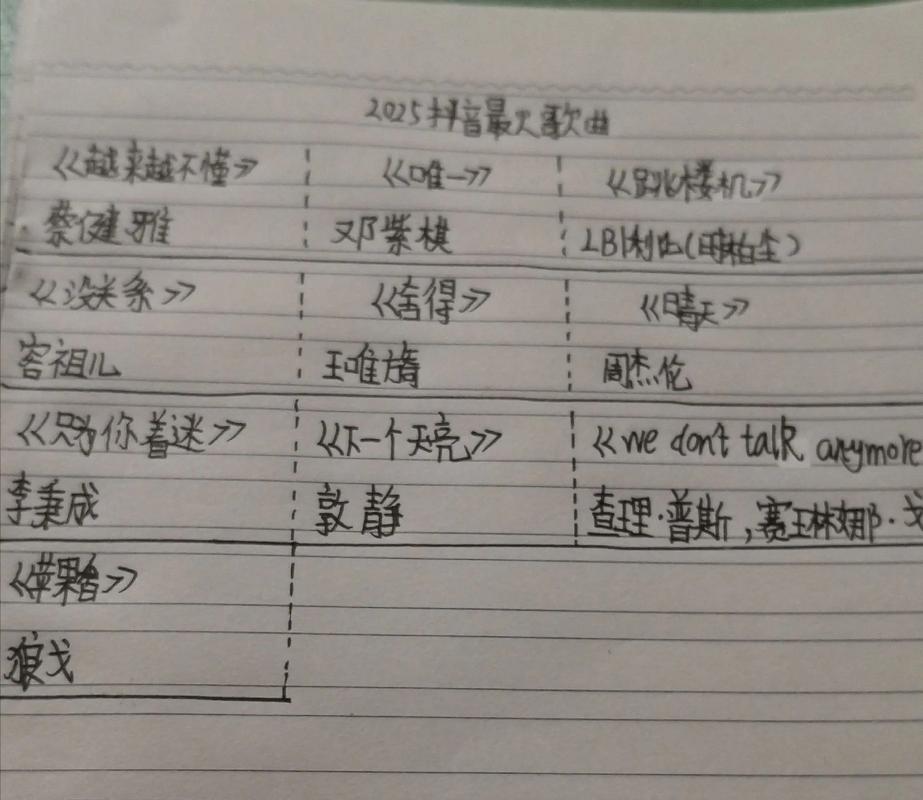 2025抖音最火歌曲
《越来越不懂》 《唯一》 《跳楼机》
蔡健雅 邓紫棋 LBI利比(时柏尘)
《没关系》 《舍得》 《晴天》
容祖儿 王唯旖 周杰伦
《只为你着迷》 《下一个天亮》 《we don't talk anymore
李秉成 郭静 查理·普斯,赛琳娜·戈
《苹果香》
狼戈